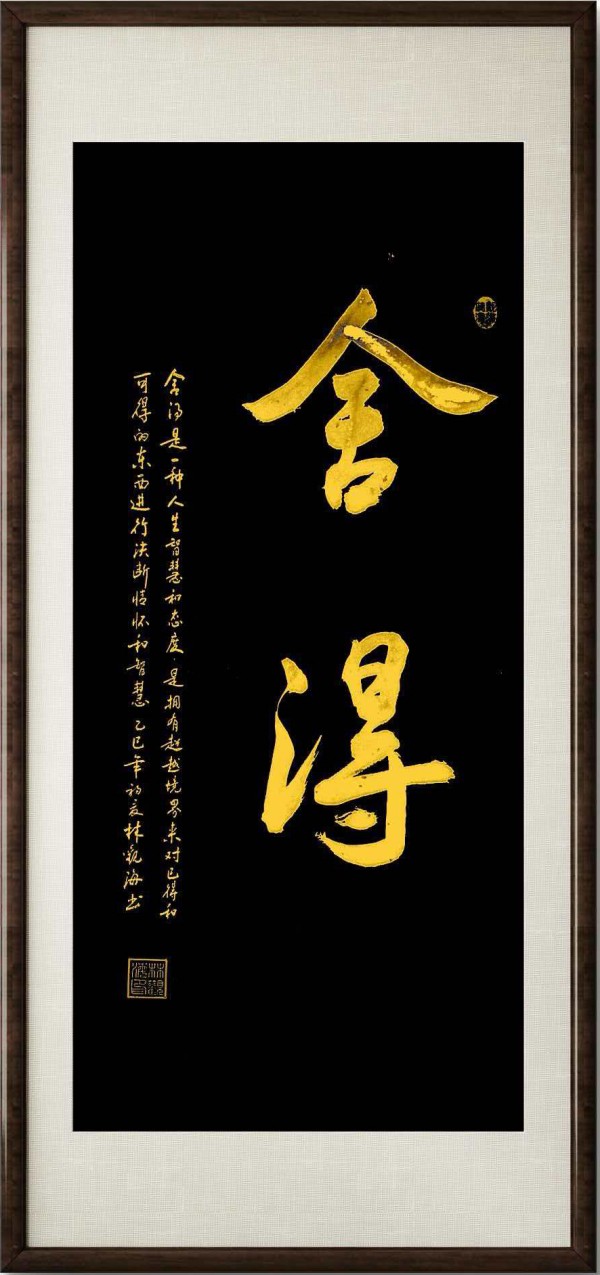 舍得
舍得是一种人生智慧和态度,是拥有超越境界来对已得和
可得的东西进行决断情怀和智慧 乙巳年初夏林觀海书